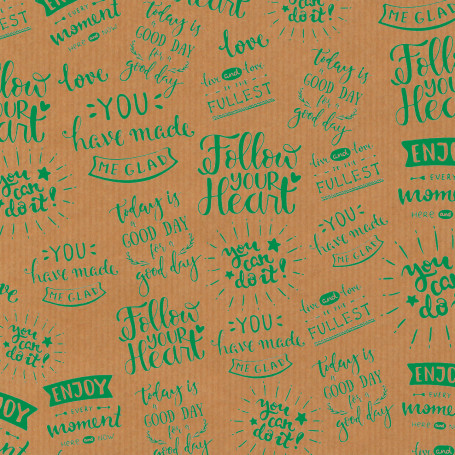 EVERY
moment
HERE and NOW
today is
GOOD DAY
for a
good day
Follow
YOUR
Heart
ME GLAD
love
today is
GOOD DAY
for a
good day
Follow
YOUR
Heart
love
live and love
FULLEST
YOU
have made
ME GLAD
Follow
YOUR
Heart
live and love
FULLEST
ENJOY
EVERY
moment
HERE and
you
can
do it!
today is
GOOD DAY
for a
good day
YOU
have made
ME GLAD
you
can
do it!
you
can
do it!
YOU
have made
ME GLAD
live and love
FULLEST
Follow
YOUR
Heart
YOU
have made
ME GLAD
you
can
do it!
today is
GOOD DAY
for a
good day
ENJOY
EVERY
moment
HERE and NOW
ENJOY
EVERY
moment
HERE and NOW
today is
GOOD DAY
for a
good day
you
can
do it!
ENJOY
live and love